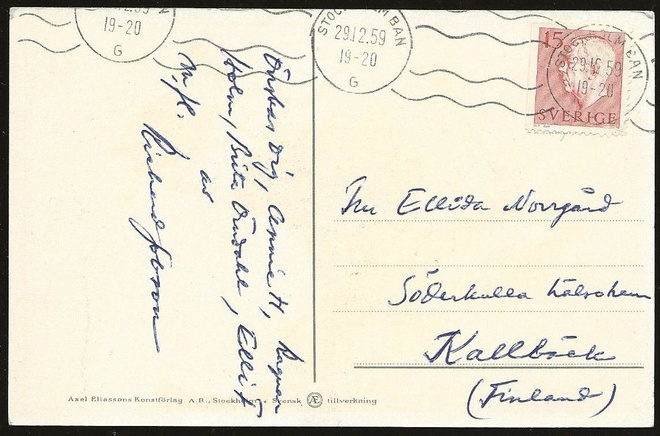 29.12.59
19-20
G
STOCKHOLM BAN
29.12.59
19-20
G
15
STOCKHOLM BAN
29.12.59
19-20
SVERIGE
Önskas Dig, Annie H, Ragnar
Holm, Brita Örndahl, Elli
m.fl.
av
Richard
Ellida Norrgård
Söderkulla hälsohem
Kallbäck
(Finland)
Axel Eliassons Konstförlag. A.B., Stockholm • Svensk Æ tillverkning